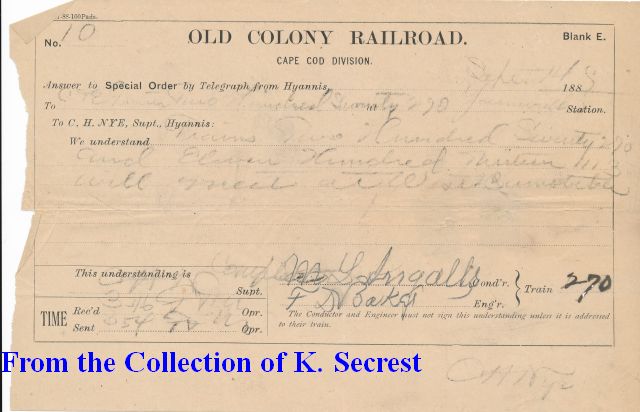 -88-100 Pads.
No. 10
OLD COLONY RAILROAD.
Blank E.
CAPE COD DIVISION.
Answer to Special Order by Telegraph from Hyannis, Sept 14 1888
To C&E Train Two Hundred Seventy 270 at Station.
To C. H. NYE, Supt., Hyannis:
We understand Trains Two Hundred Seventy 270
and Eleven Hundred thirteen 1113
will meet at West Barnstable
This understanding is Supt.
TIME
Rec'd Opr.
Sent Opr.
M L Ingalls Cond'r.
F D Oakes Eng'r.
Train 270
The Conductor and Engineer must not sign this understanding unless it is addressed
to their train.
C H Nye
From the Collection of K. Secrest